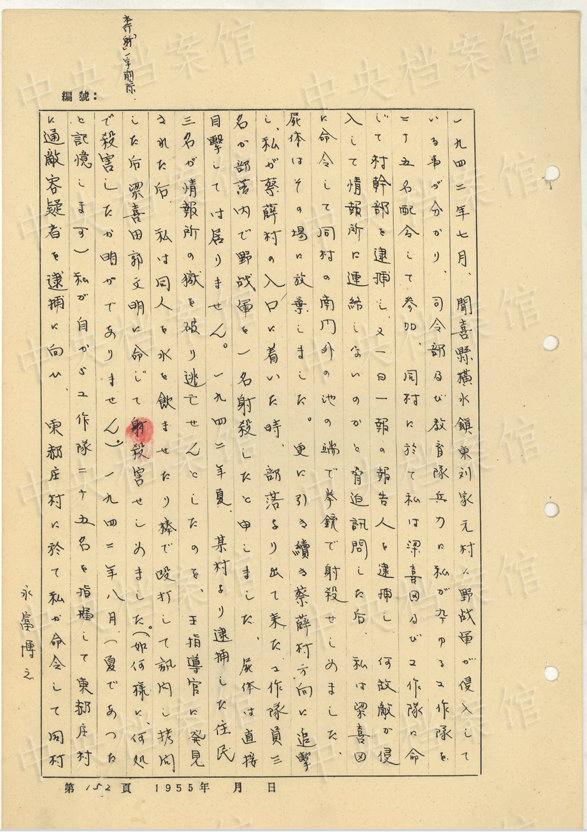 本行「射」一字削除
編號:
一九四二年七月、聞喜縣横水鎮東刘家元村に野战軍が侵入して
いる事が分かり、司令部及び教育隊兵力に私が率ゆる工作隊を
二十五名配合して参加、同村に於て私は梁喜田及び工作隊に命
じて村幹部を逮捕し又一日一報の報告人を逮捕し何故敵が侵
入して情報所に連絡しないのかと脅迫訊問した后、私は梁喜田
に命令して同村の南門外の池の端で拳銃で射殺せしめました。
屍体はその場に放棄しました。更に引き續き蔡薛村方向に追撃
し、私が蔡薛村の入口に着いた時、部落より出て来た工作隊員三
名が部落内で野战軍を一名射殺したと申しました。屍体は直接
目撃しては居りません。一九四二年夏、某村より逮捕した住民
三名が情報所の獄を破り逃亡せんとしたのを、王指導官に発見
された后、私は同人を水を飲ませたり棒で殴打して訊问し拷問
した后梁喜田郭文明に命じて射殺害せしめました。(如何様に、何処
で殺害したか明かでありません)。一九四二年八月(夏であった
と記憶します)私が自から工作隊二十五名を指揮して東郝庄村
に通敵容疑者を逮捕に向い、東郝庄村に於て私が命令して同村
永富博之
第152頁 1955年 月 日
中央档案馆